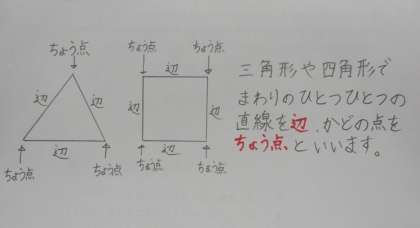 ちょう点
辺
辺
辺
ちょう点
ちょう点
ちょう点
ちょう点
辺
辺
辺
辺
ちょう点
ちょう点
三角形や四角形で
まわりのひとつひとつの
直線を辺、かどの点を
ちょう点、といいます。